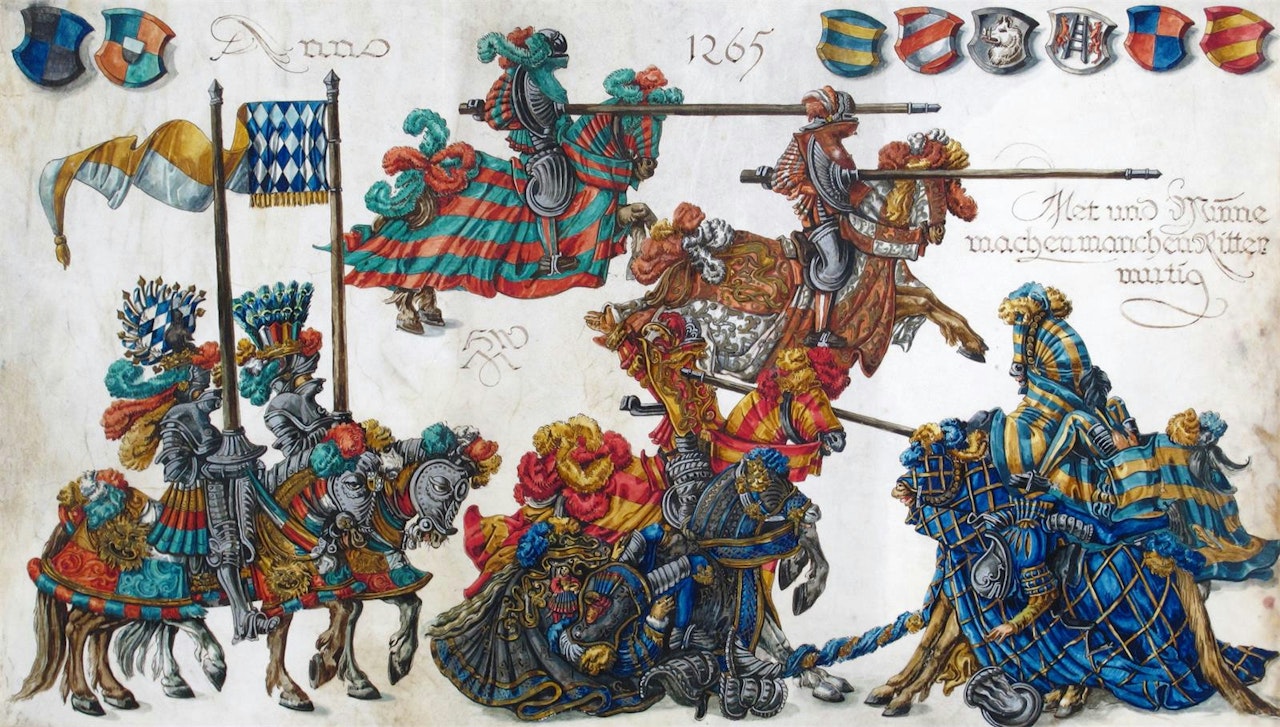 Anno
1265
Met und Minne
machen manchen Ritter
mutig